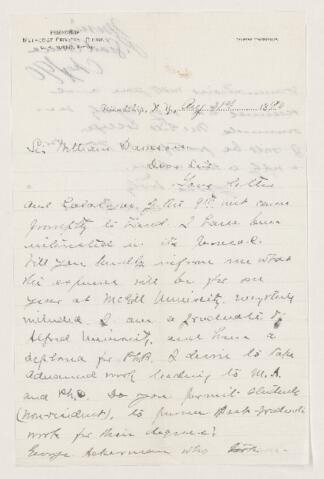 PARSONAGE
METHODIST PROTESTANT CHURCH
Friendship, N. Y., Aug. 21st 1890
Sir William Dawson
Dear Sir:
Your letter
and Calendar of the 9th inst came
promptly to hand. I have been
interested in its perusal.
Will you kindly inform me what
the expense will be for one
year at McGill University, everything
included. I am a graduate of
Alfred University, and have a
diploma for Ph.B. I desire to take
advanced work leading to M.A.
and Ph.D. Do you permit students
(non-resident), to pursue Post-graduate
work for their degrees?
George Ackerman who took